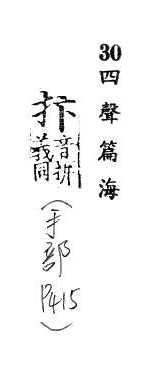 30四聲篇海
抃
音拚
義同
(手部
P415)